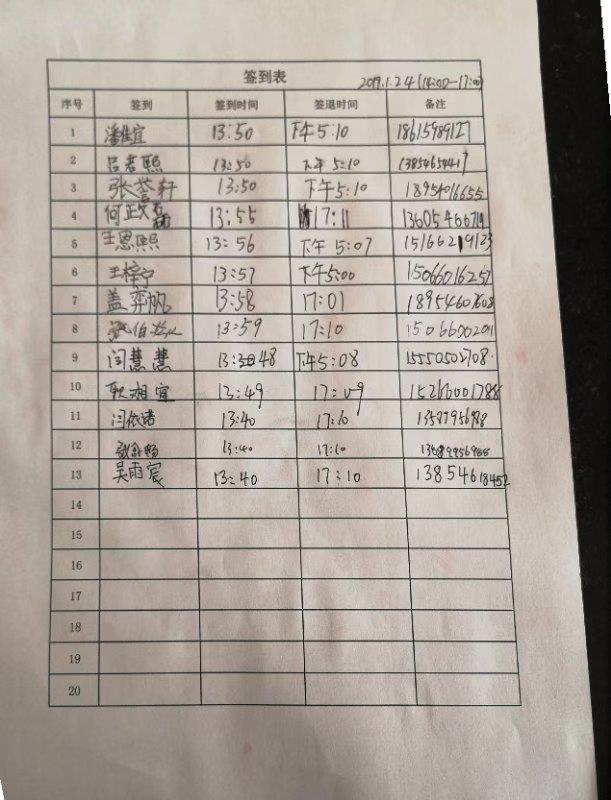 签到表
2019.1.24(14:00-17:00)
序号 签到 签到时间 签退时间 备注
1 潘佳宜 13:50 下午5:10 18615989127
2 吕君熙 13:50 下午 5:10
3 张誉轩 13:50 下午5:10 18954016655
4 何政 13:55 17:11
5 王恩熙 13:56 下午 5:07 15166219123
6 王梓宁 13:57 下午5:00 15066016257
7 盖弈帆 13:58 17:01
8 13:59 17:10 1506600201
9 闫慧慧 13:48 下午5:08 15550502708
10 耿湘宜 13:49 17:09 15266001788
11 闫依诺 13:40 17:10
12 13:40 17:10
13 吴雨宸 13:40 17:10 13854618452
14
15
16
17
18
19
20